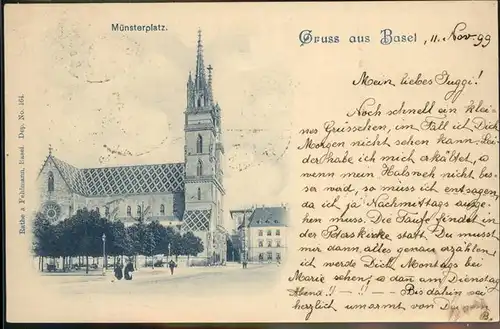 Münsterplatz.
Gruss aus Basel
11. Nov. 99
Rathe & Fehlmann, Basel. Dep. No. 164.
Mein liebes Guggi!
Noch schnell ein klei-
nes Grüsschen, im Fall ich Dich
Morgen nicht sehen kann. Lei-
der habe ich mich erkältet, u
wenn mein Halsweh nicht bes-
ser wird, so muss ich entsagen,
da ich ja Nachmittags ausge-
hen muss. Die Taufe findet in
der Peterskirche statt. Du musst
mir dann alles genau erzählen,
ich werde Dich Montags bei
Marie sehen, o dann am Dienstag
Abend! - ! - - Bis dahin sei
herzlich umarmt von Deinem
B.